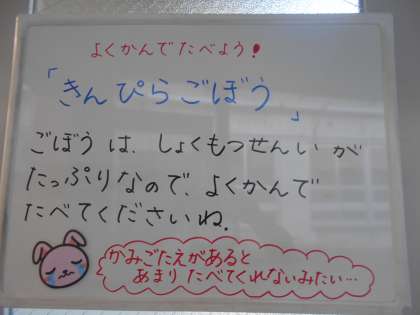 よくかんでたべよう!
「きんぴらごぼう」
ごぼうは、しょくもつせんいが
たっぷりなので、よくかんで
たべてくださいね.
かみごたえがあると
あまりたべてくれないみたい…